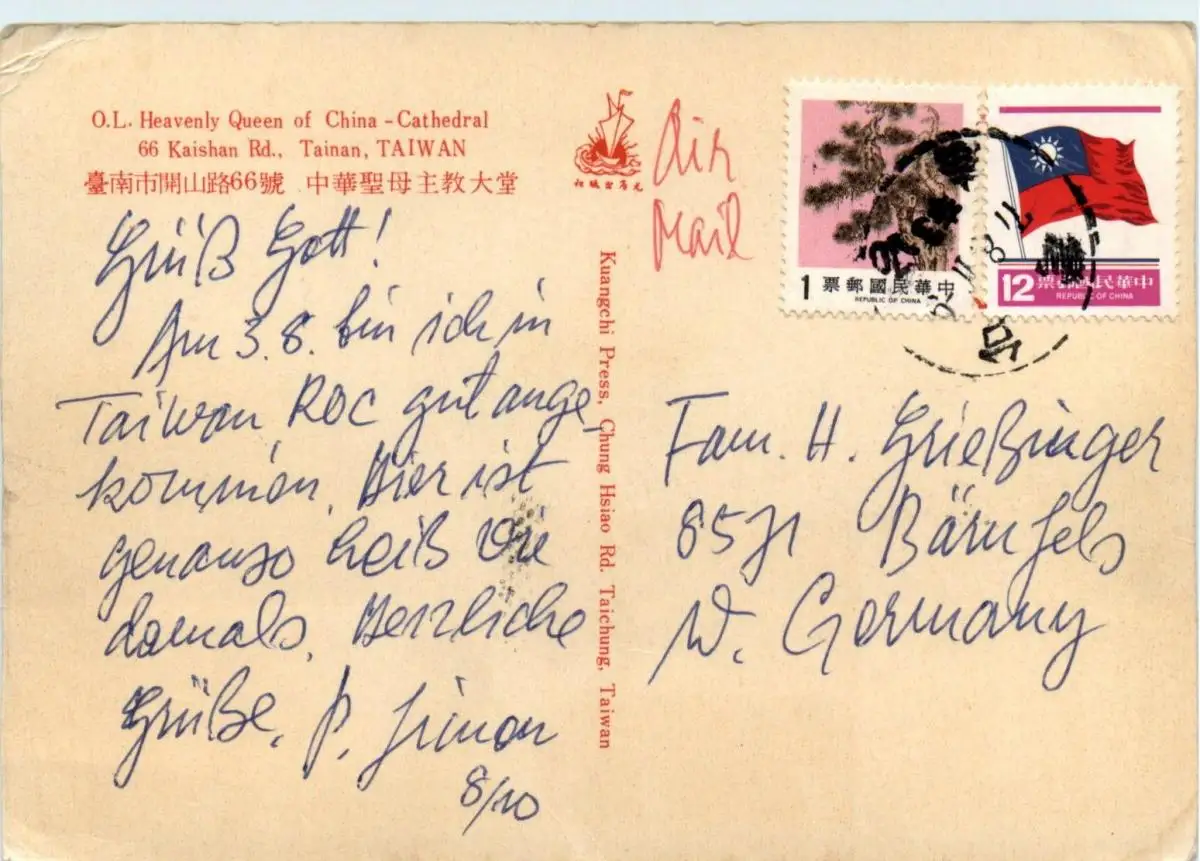 O.L. Heavenly Queen of China - Cathedral
66 Kaishan Rd., Tainan, TAIWAN
臺南市開山路66號 中華聖母主教大堂
光啓出版社
Grüß Gott!
Am 3.8. bin ich in
Taiwan, ROC gut ange-
kommen. Hier ist
genauso heiß wie
damals. Herzliche
Grüße, P. Simon
8/10
Kuangchi Press, Chung Hsiao Rd. Taichung, Taiwan
Air
Mail
1 票郵國民華中
REPUBLIC OF CHINA
12 票郵國民華中
REPUBLIC OF CHINA
Fam. H. Grießinger
8571 Bärnfels
W. Germany